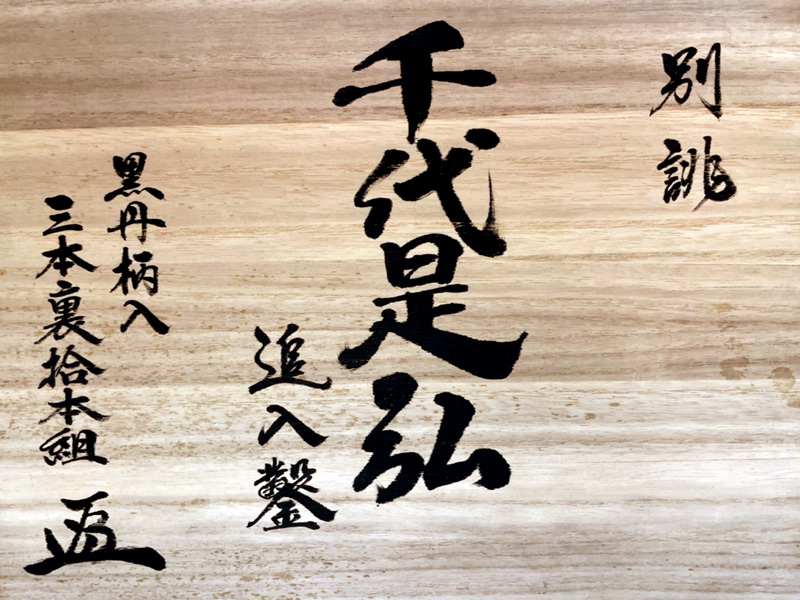 別誂
千代是弘
追入鑿
黒丹柄入
三本裏拾本組